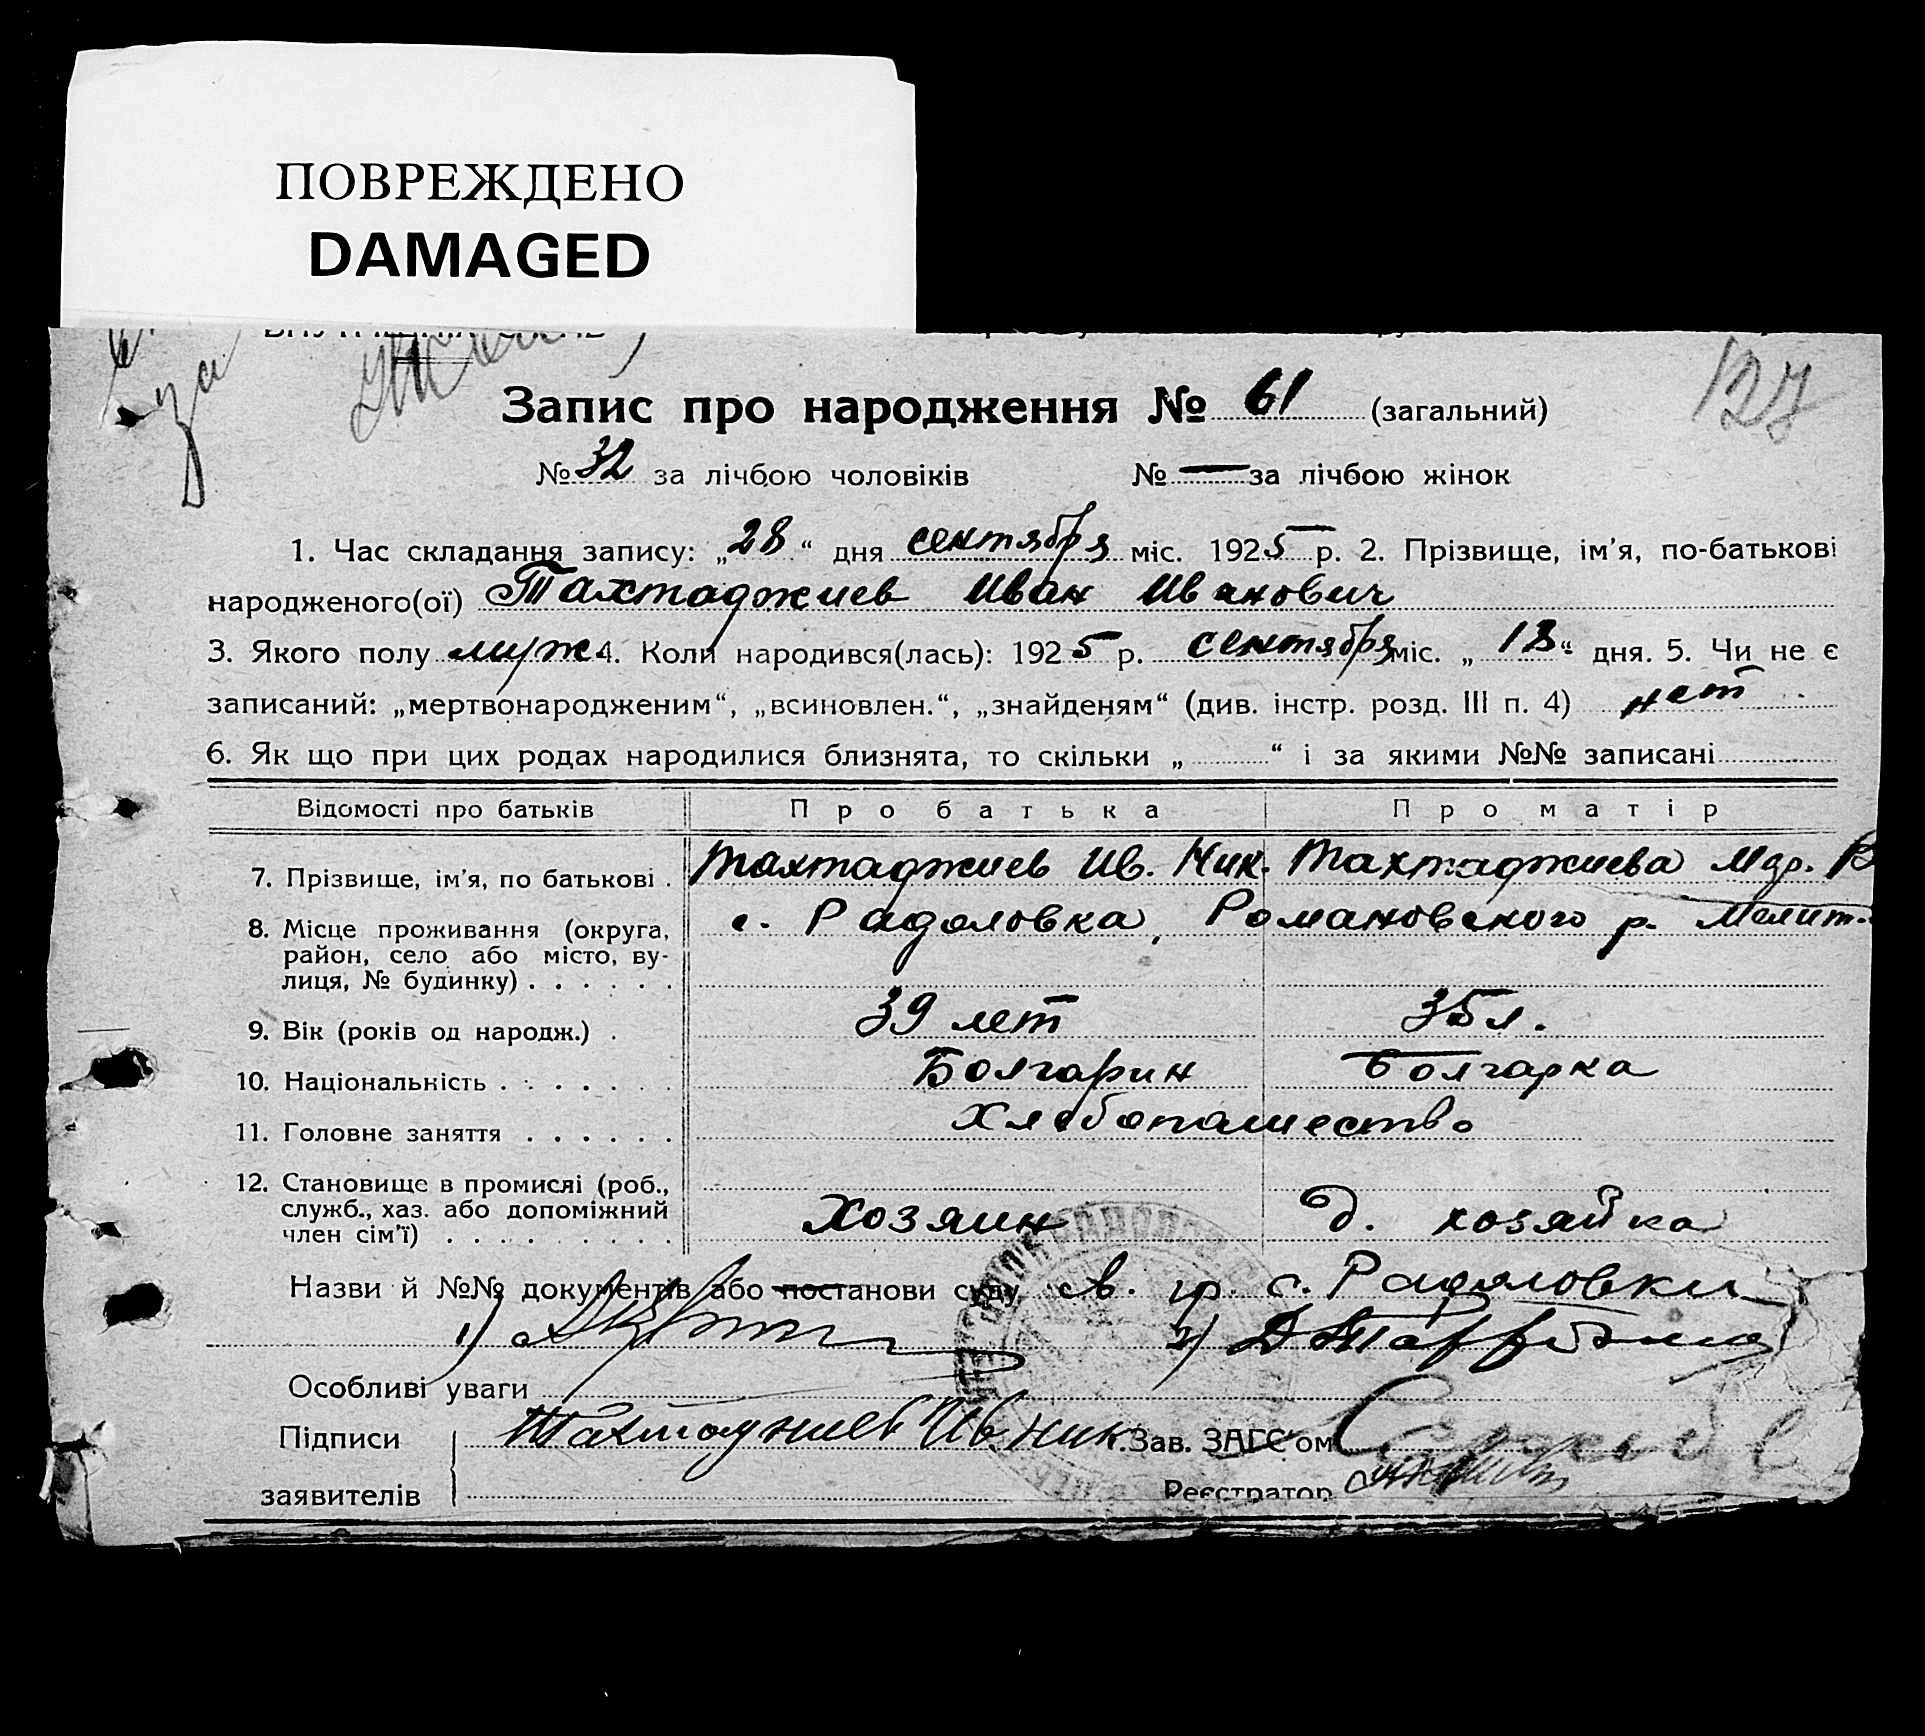 ПОВРЕЖДЕНО
DAMAGED
127
Запис про народження № 61 (загальний)
№ 32 за лічбою чоловіків № — за лічбою жінок
1. Час складання запису: „28“ дня сентября міс. 1925 р. 2. Прізвище, ім’я, по-батькові
народженого(ої) Тахтаджиев Иван Иванович
3. Якого полу муж. 4. Коли народився(лась): 1925 р. сентября міс. „18“ дня. 5. Чи не є
записаний: „мертвонародженим“, „всиновлен.“, „знайденям“ (див. інстр. розд. III п. 4) нет
6. Як що при цих родах народилися близнята, то скільки „ “ і за якими №№ записані
Відомості про батьків Про батька Про матір
7. Прізвище, ім’я, по батькові . Тахтаджиев Ив. Ник. Тахтаджиева Мар.
8. Місце проживання (округа, с. Радоловка, Романовского р. Мелит.
район, село або місто, ву-
лиця, № будинку) . . . . . .
9. Вік (років од народж.) . 39 лет 35 л.
10. Національність . . . . . . . Болгарин Болгарка
11. Головне заняття . . . . . . Хлебопашество
12. Становище в промислі (роб.,
служб., хаз. або допоміжний Хозяин д. хозяйка
член сім’ї) . . . . . . . . .
Назви й №№ документів або постанови суду св. гр. с. Радоловки
1) 2)
Особливі уваги
Підписи Тахтаджиев Ив Ник. Зав. ЗАГС’ом
заявителів Реєстратор